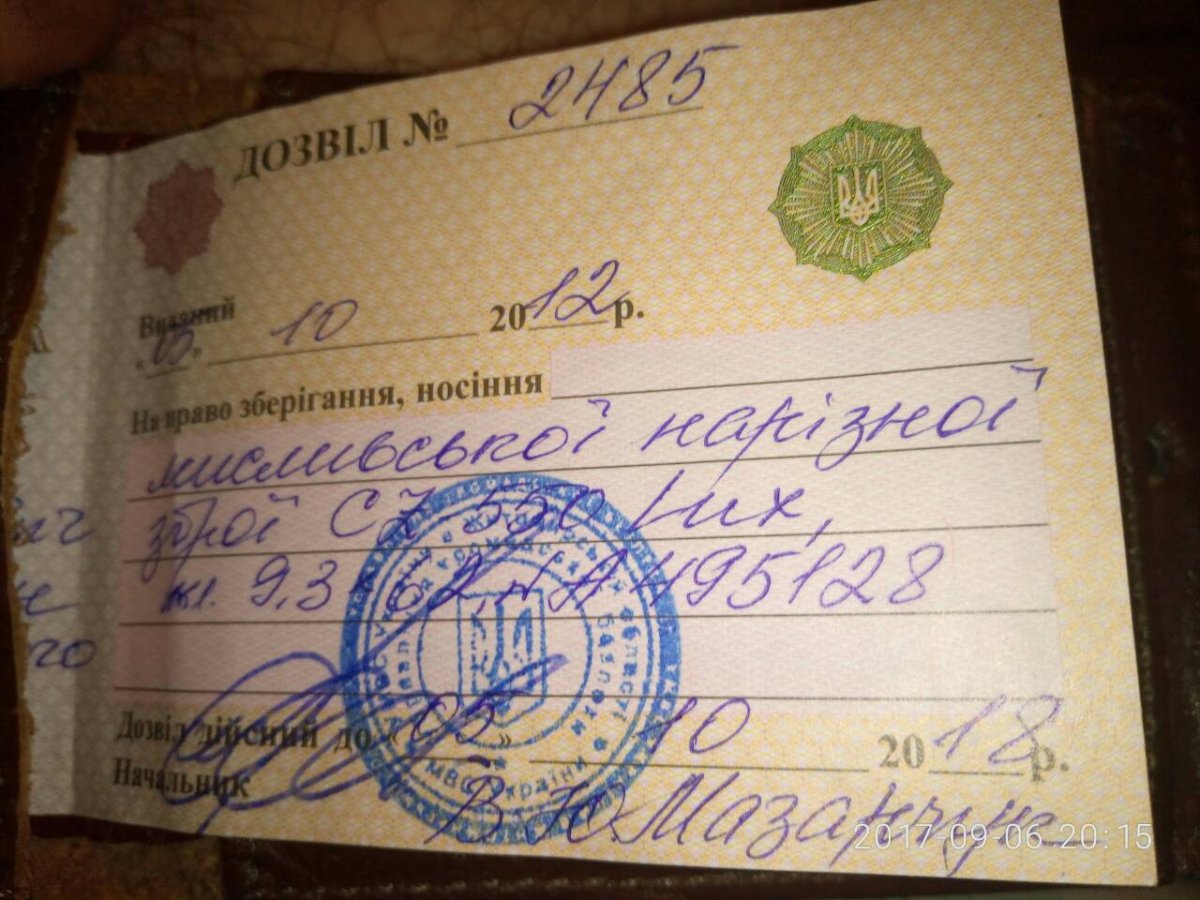 ДОЗВІЛ № 2485
Виданий
"05" 10 2012 р.
На право зберігання, носіння
мисливської нарізної
зброї CZ 550 Lux,
кл. 9,3 62, № А 495128
Дозвіл дійсний до "05" 10 2018 р.
Начальник В.Ю.
МВС України
2017-09-06 20:15